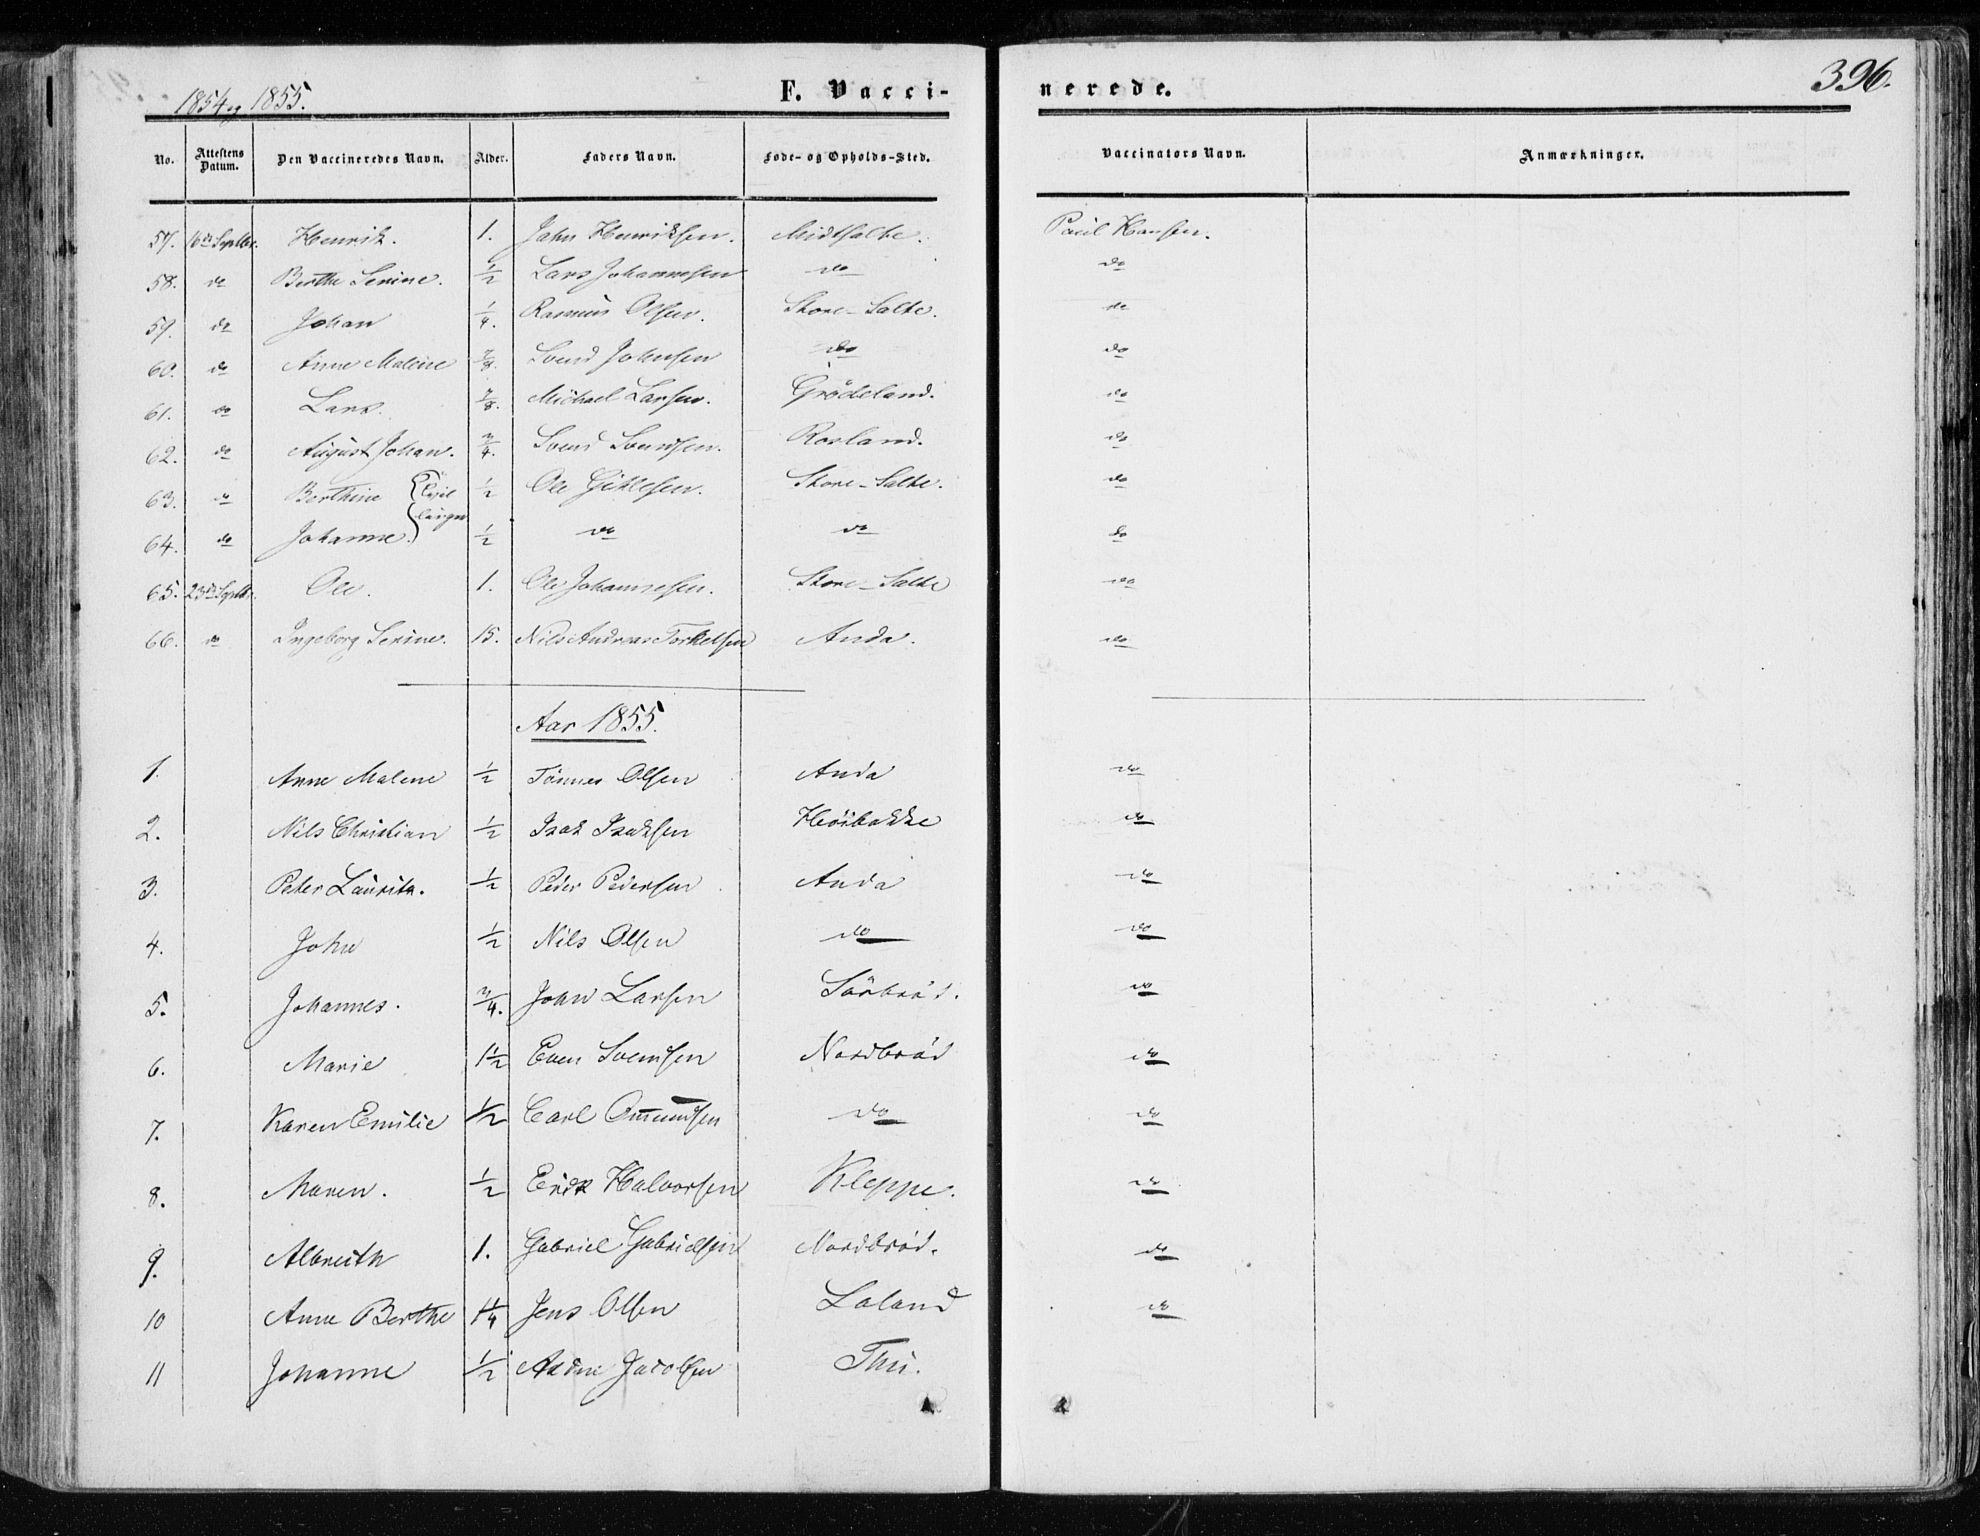 1854 og 1855. F. Vaccinerede. 396.
No. Attestens Datum. Den Vaccineredes Navn. Alder. Faders Navn. Føde- og Opholds-Sted. Vaccinators Navn. Anmærkninger.
57. 16de Septbr. Henrik. 1. John Henriksen. Midtsalte. Paul Hansen.
58. do Berthe Serine. 1/2 Lars Johannesen do do
59. do Johan 1/4. Rasmus Olsen. Store-Salte. do
60. do Anne Malene 7/8. Svend Johnsen do do
61. do Lars. 7/8. Michael Larsen. Grödeland. do
62. do August Johan. 3/4. Svend Svendsen. Rosland. do
63. do Berthine 1/2 Ole Store-Salte. do
64. do Johanne. 1/2 do do do
65. 23de Septbr. Ole. 1. Ole Johannesen. Store-Salte do
66. do Ingeborg Serine. 15. Nils Andreas Torkelsen Anda. do
Aar 1855.
1. Anne Malene 1/2 Tönnes Olsen Anda do
2. Nils Christian 1/2 Isak Isaksen Höibakke do
3. Peter Lauritz. 1/2 Peder Pedersen Anda do
4. John 1/2 Nils Olsen do do
5. Johannes. 3/4. John Larsen Sörbröd. do
6. Marie 1 1/2 Even Svendsen Nordbröd do
7. Karen Emilie 1/2 Carl Ommundsen do do
8. Maren. 1/2 Erik Halvorsen Kleppe. do
9. Albreith 1. Gabriel Gabrielsen Nordbröd. do
10 Anne Berthe 1 1/4 Jens Olsen Laland do
11 Johanne 1/2 Jacobsen Thu.